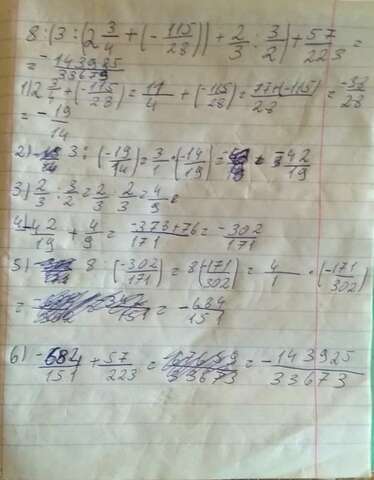 8:(3:(2 3/4+(-115/28))+2/3:3/2)+57/223=
=-143925/33679
1) 2 3/4+(-115/28)=11/4+(-115/28)=77+(-115)/28=-38/28
=-19/14
2) 3:(-19/14)=3/1·(-14/19)=-42/19
3) 2/3:3/2=2/3·2/3=4/9
4) -42/19+4/9=-373+76/171=-302/171
5) 8:(-302/171)=8(-171/302)=4/1·(-171/302)
=-684/151
6) -684/151+57/223=-143925/33673